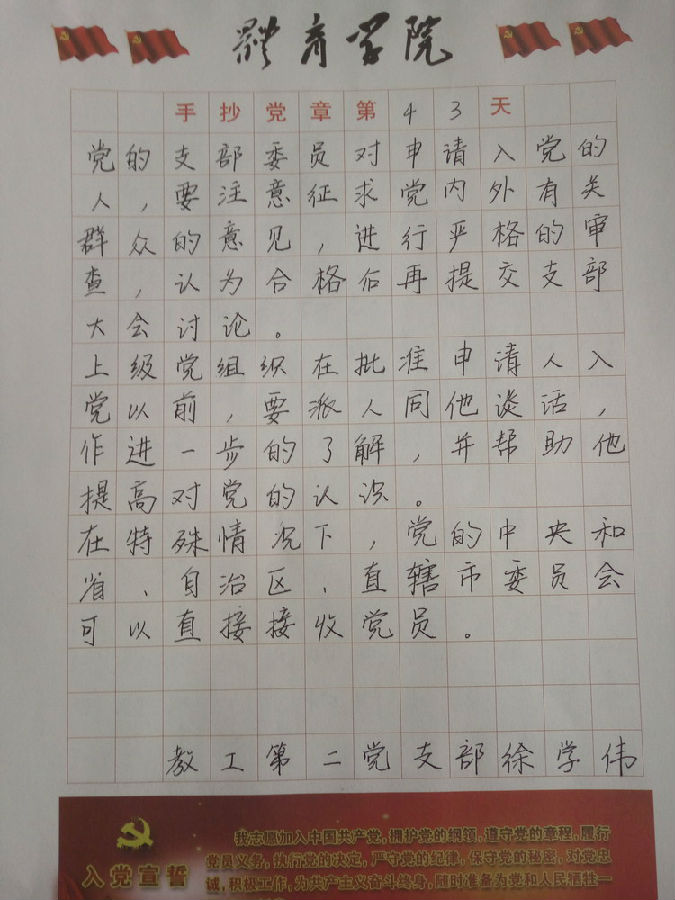 體育学院
手抄党章第43天
党的支部委员对申请入党的
人，要注意征求党内外有关
群众的意见，进行严格的审
查，认为合格后再提交支部
大会讨论。
上级党组织在批准申请人入
党以前，要派人同他谈话，
作进一步的了解，并帮助他
提高对党的认识。
在特殊情况下，党的中央和
省、自治区、直辖市委员会
可以直接接收党员。
教工第二党支部徐学伟
入党宣誓
我志愿加入中国共产党，拥护党的纲领，遵守党的章程，履行
党员义务，执行党的决定，严守党的纪律，保守党的秘密，对党忠
诚，积极工作，为共产主义奋斗终身，随时准备为党和人民牺牲一